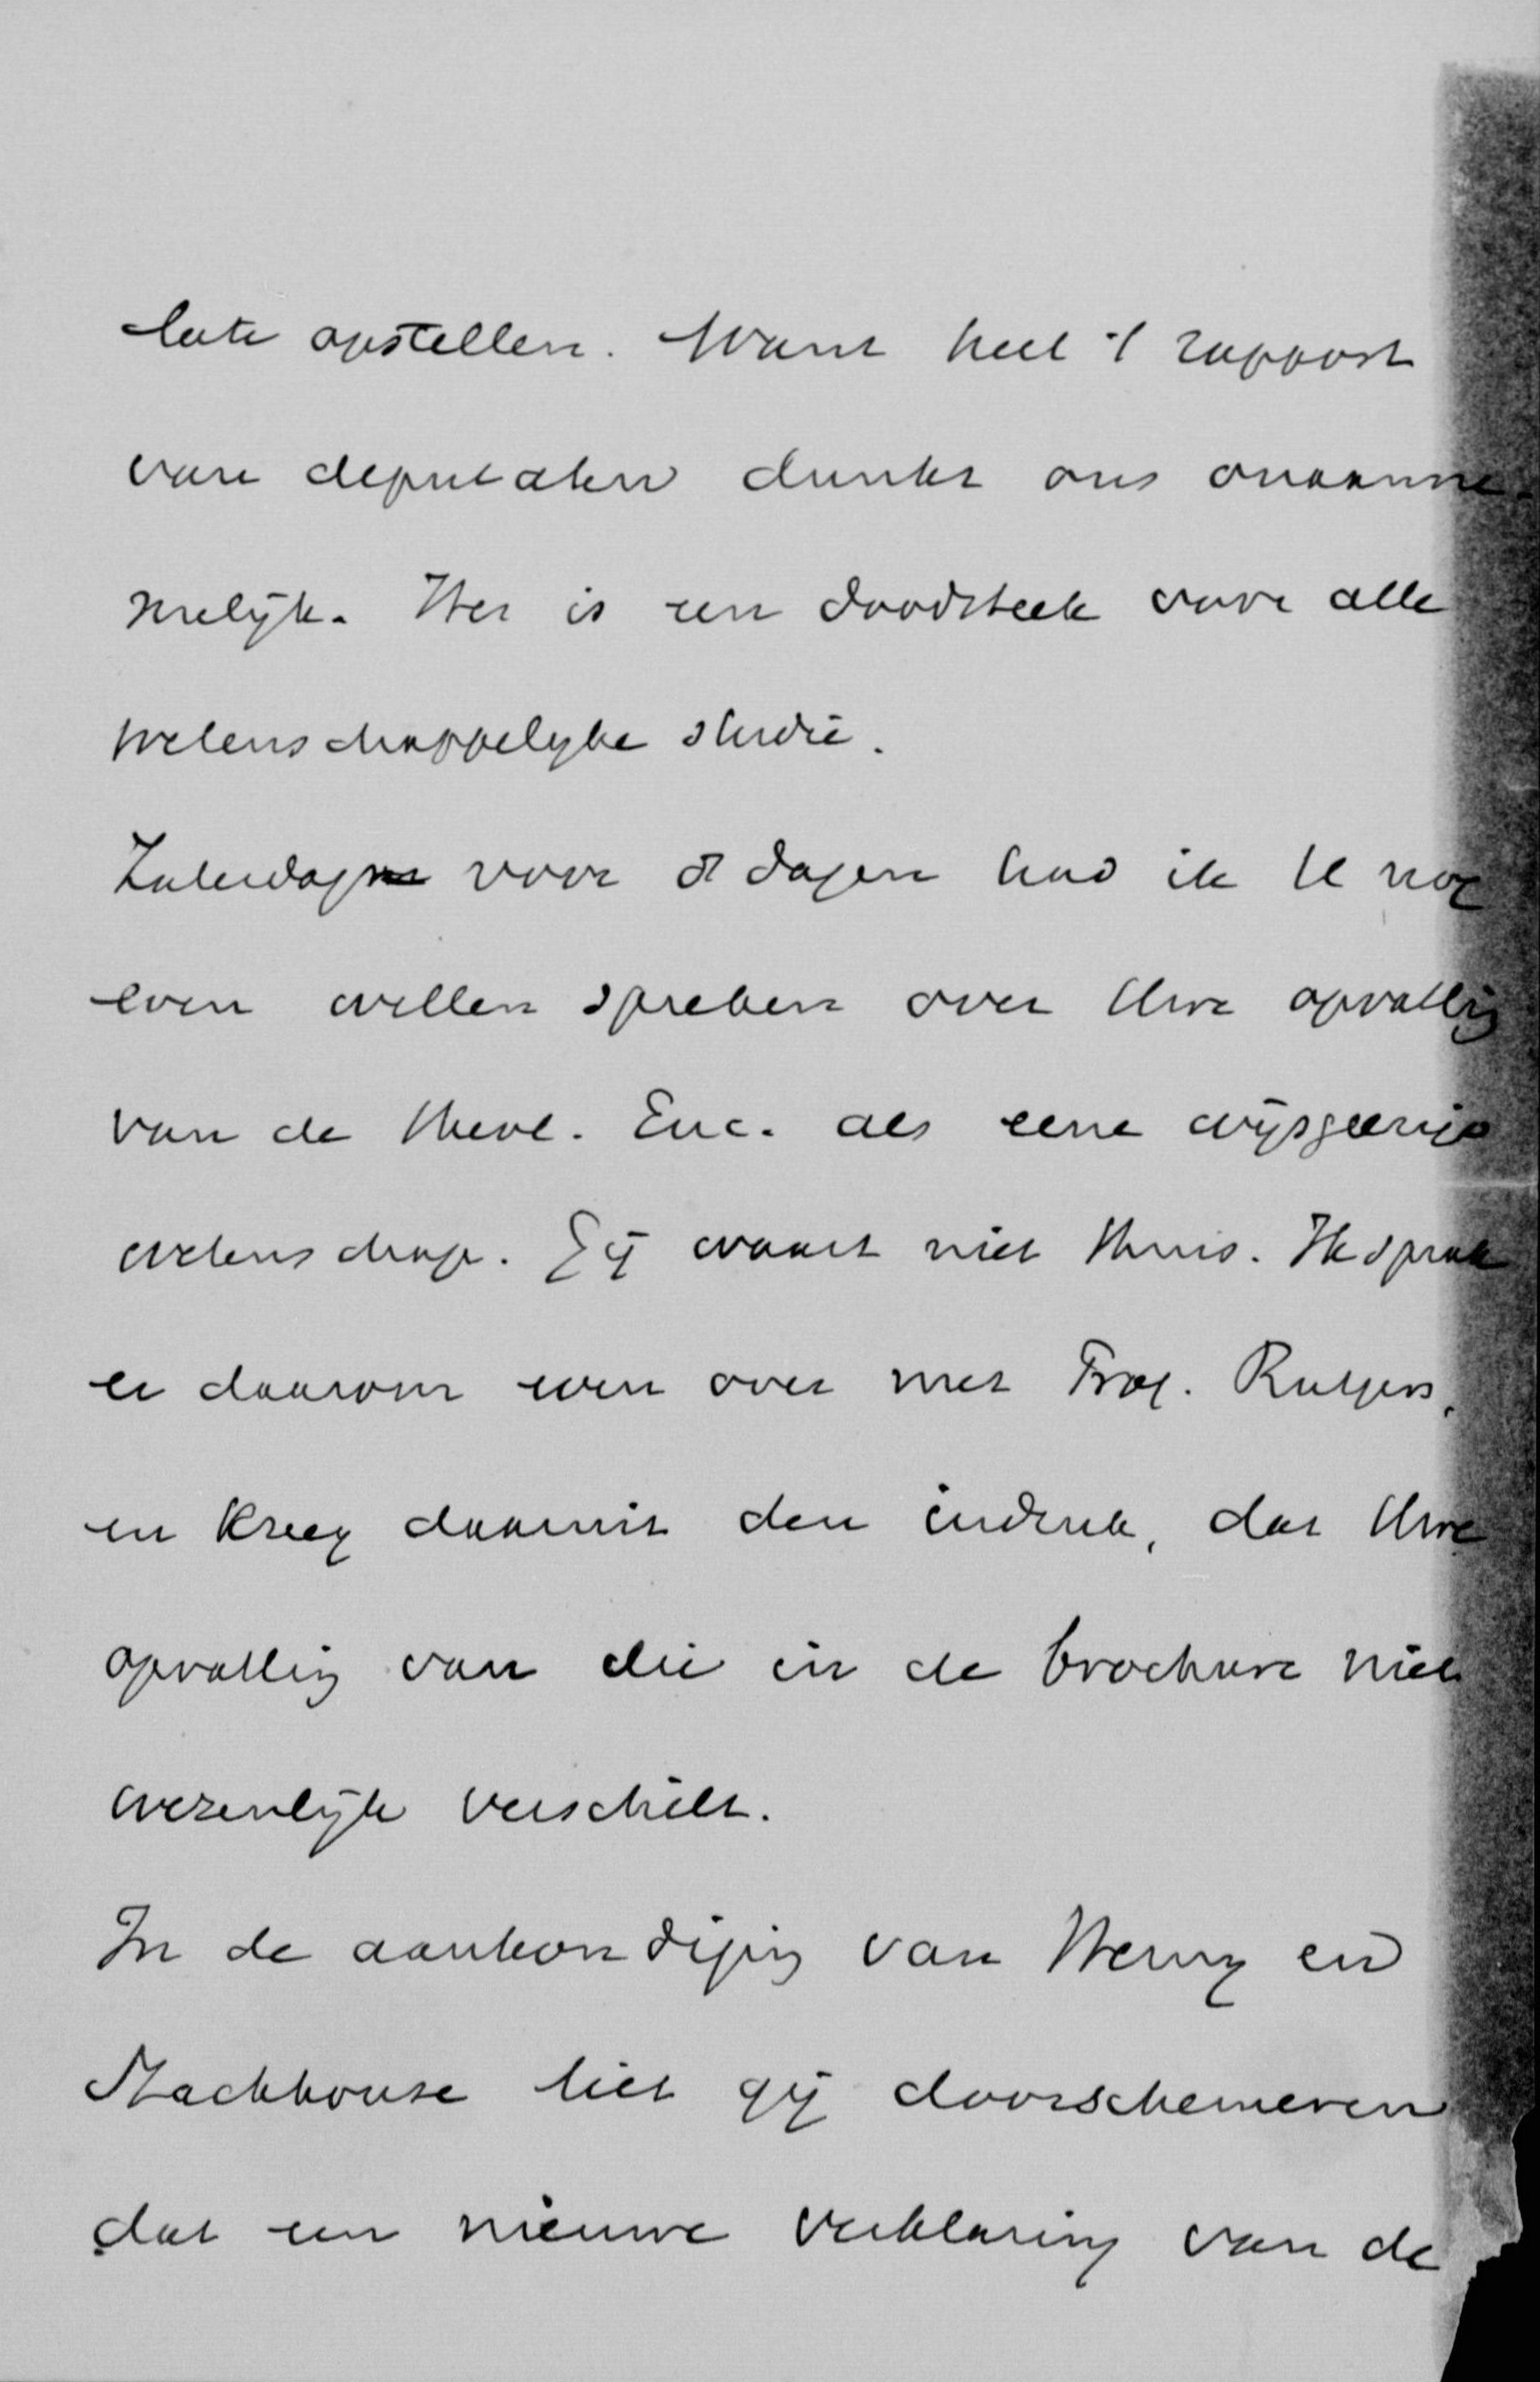 late opstellen. Want heel 't rapport
van deputaten dunkt ons onaanne-
melijk. Het is een doodsteek voor alle
wetenschappelijke studie.
Zaterdag voor 8 dagen had ik U nog
even willen spreken over Uwe opvatting
van de theol. Enc. als eene wijsgeerige
wetenschap. Gij waart niet thuis. Ik sprak
er daarom even over met Prof. Rutgers,
en kreeg daaruit den indruk, dat Uwe
opvatting van die in de brochure niet
wezenlijk verschilt.
In de aankondiging van Henry en
Stackhouse liet gij doorschemeren
dat een nieuwe verklaring van de